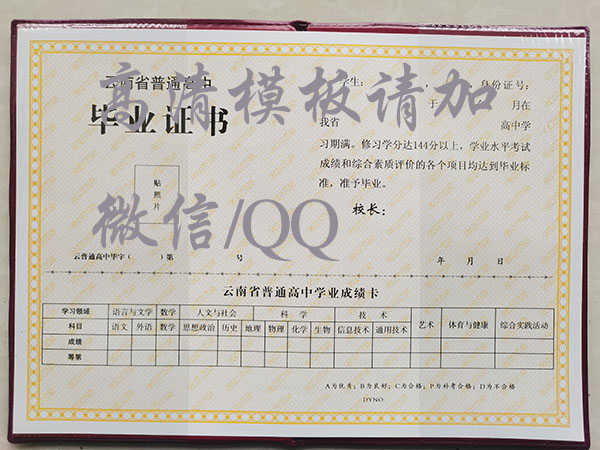 云南省普通高中
毕业证书
学生：　　　，　　　身份证号：
于　　　月在
我省　　　高中学
习期满。修习学分达144分以上，学业水平考试
成绩和综合素质评价的各个项目均达到毕业标
准，准予毕业。
校长：
贴
照
片
云普通高中毕字（　　）第　　　号
年　月　日
高清模板请加
微信/QQ
云南省普通高中学业成绩卡
学习领域 语言与文学 数学 人文与社会 科学 技术 艺术 体育与健康 综合实践活动
科目 语文 外语 数学 思想政治 历史 地理 物理 化学 生物 信息技术 通用技术
成绩
等第
A为优秀；B为良好；C为合格；P为补考合格；D为不合格
DYNO